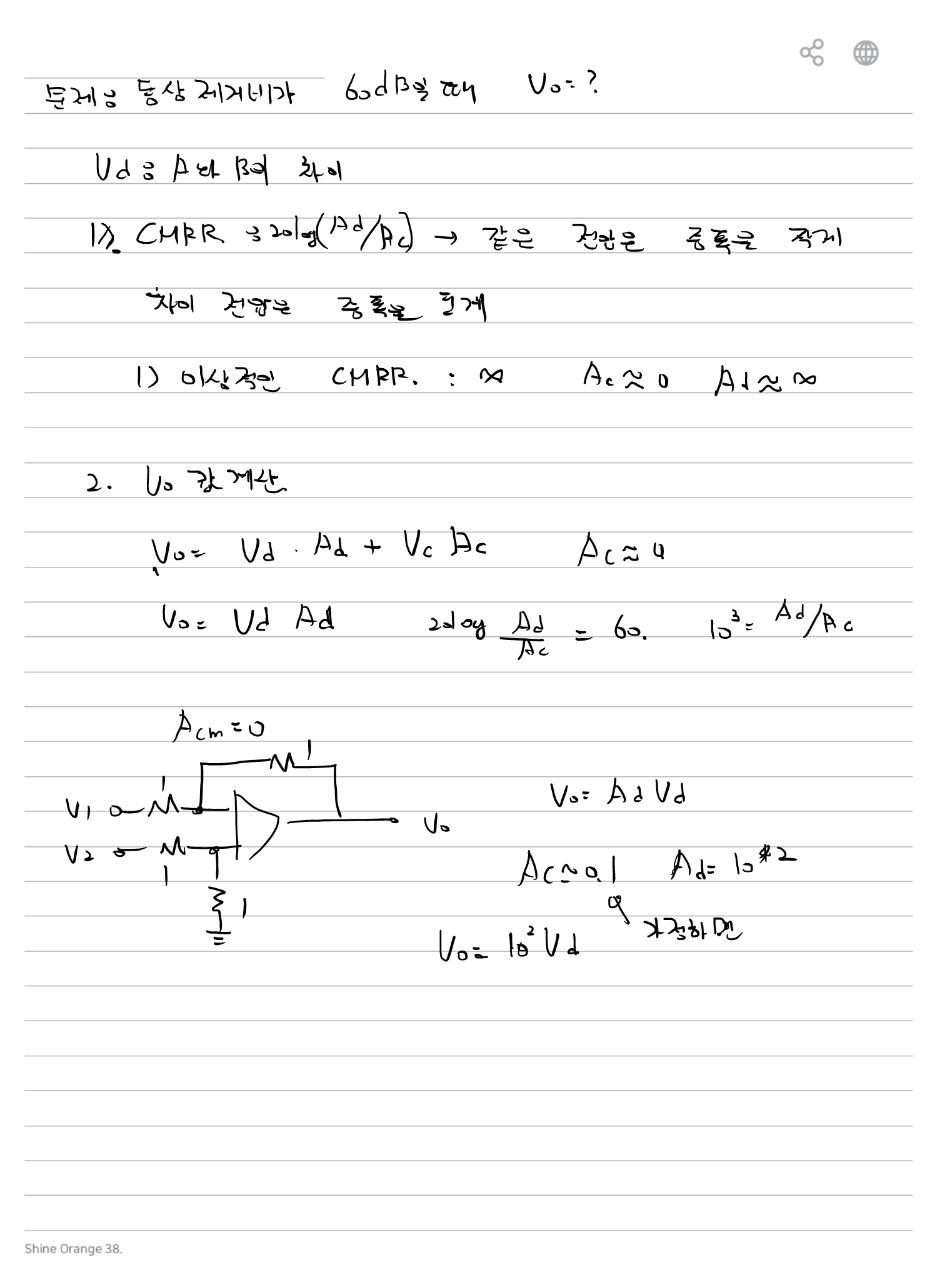 문제: 동상 제거비가 60dB일 때 Vo=?
Vd: A와 B의 차이
1). CMRR : 20log(Ad/Ac) → 같은 전압은 증폭을 작게
차이 전압은 증폭을 크게
1) 이상적인 CMRR. : ∞ Ac≈0 Ad≈∞
2. Vo 값 계산.
Vo= Vd · Ad + Vc Ac Ac≈0
Vo= Vd Ad 20log Ad/Ac = 60. 10³= Ad/Ac
Acm=0
1
1
V1
Vo= Ad Vd
Vo
V2
1
Ac≈0.1 Ad= 10^2
1
가정하면
Vo= 10² Vd
Shine Orange 38.